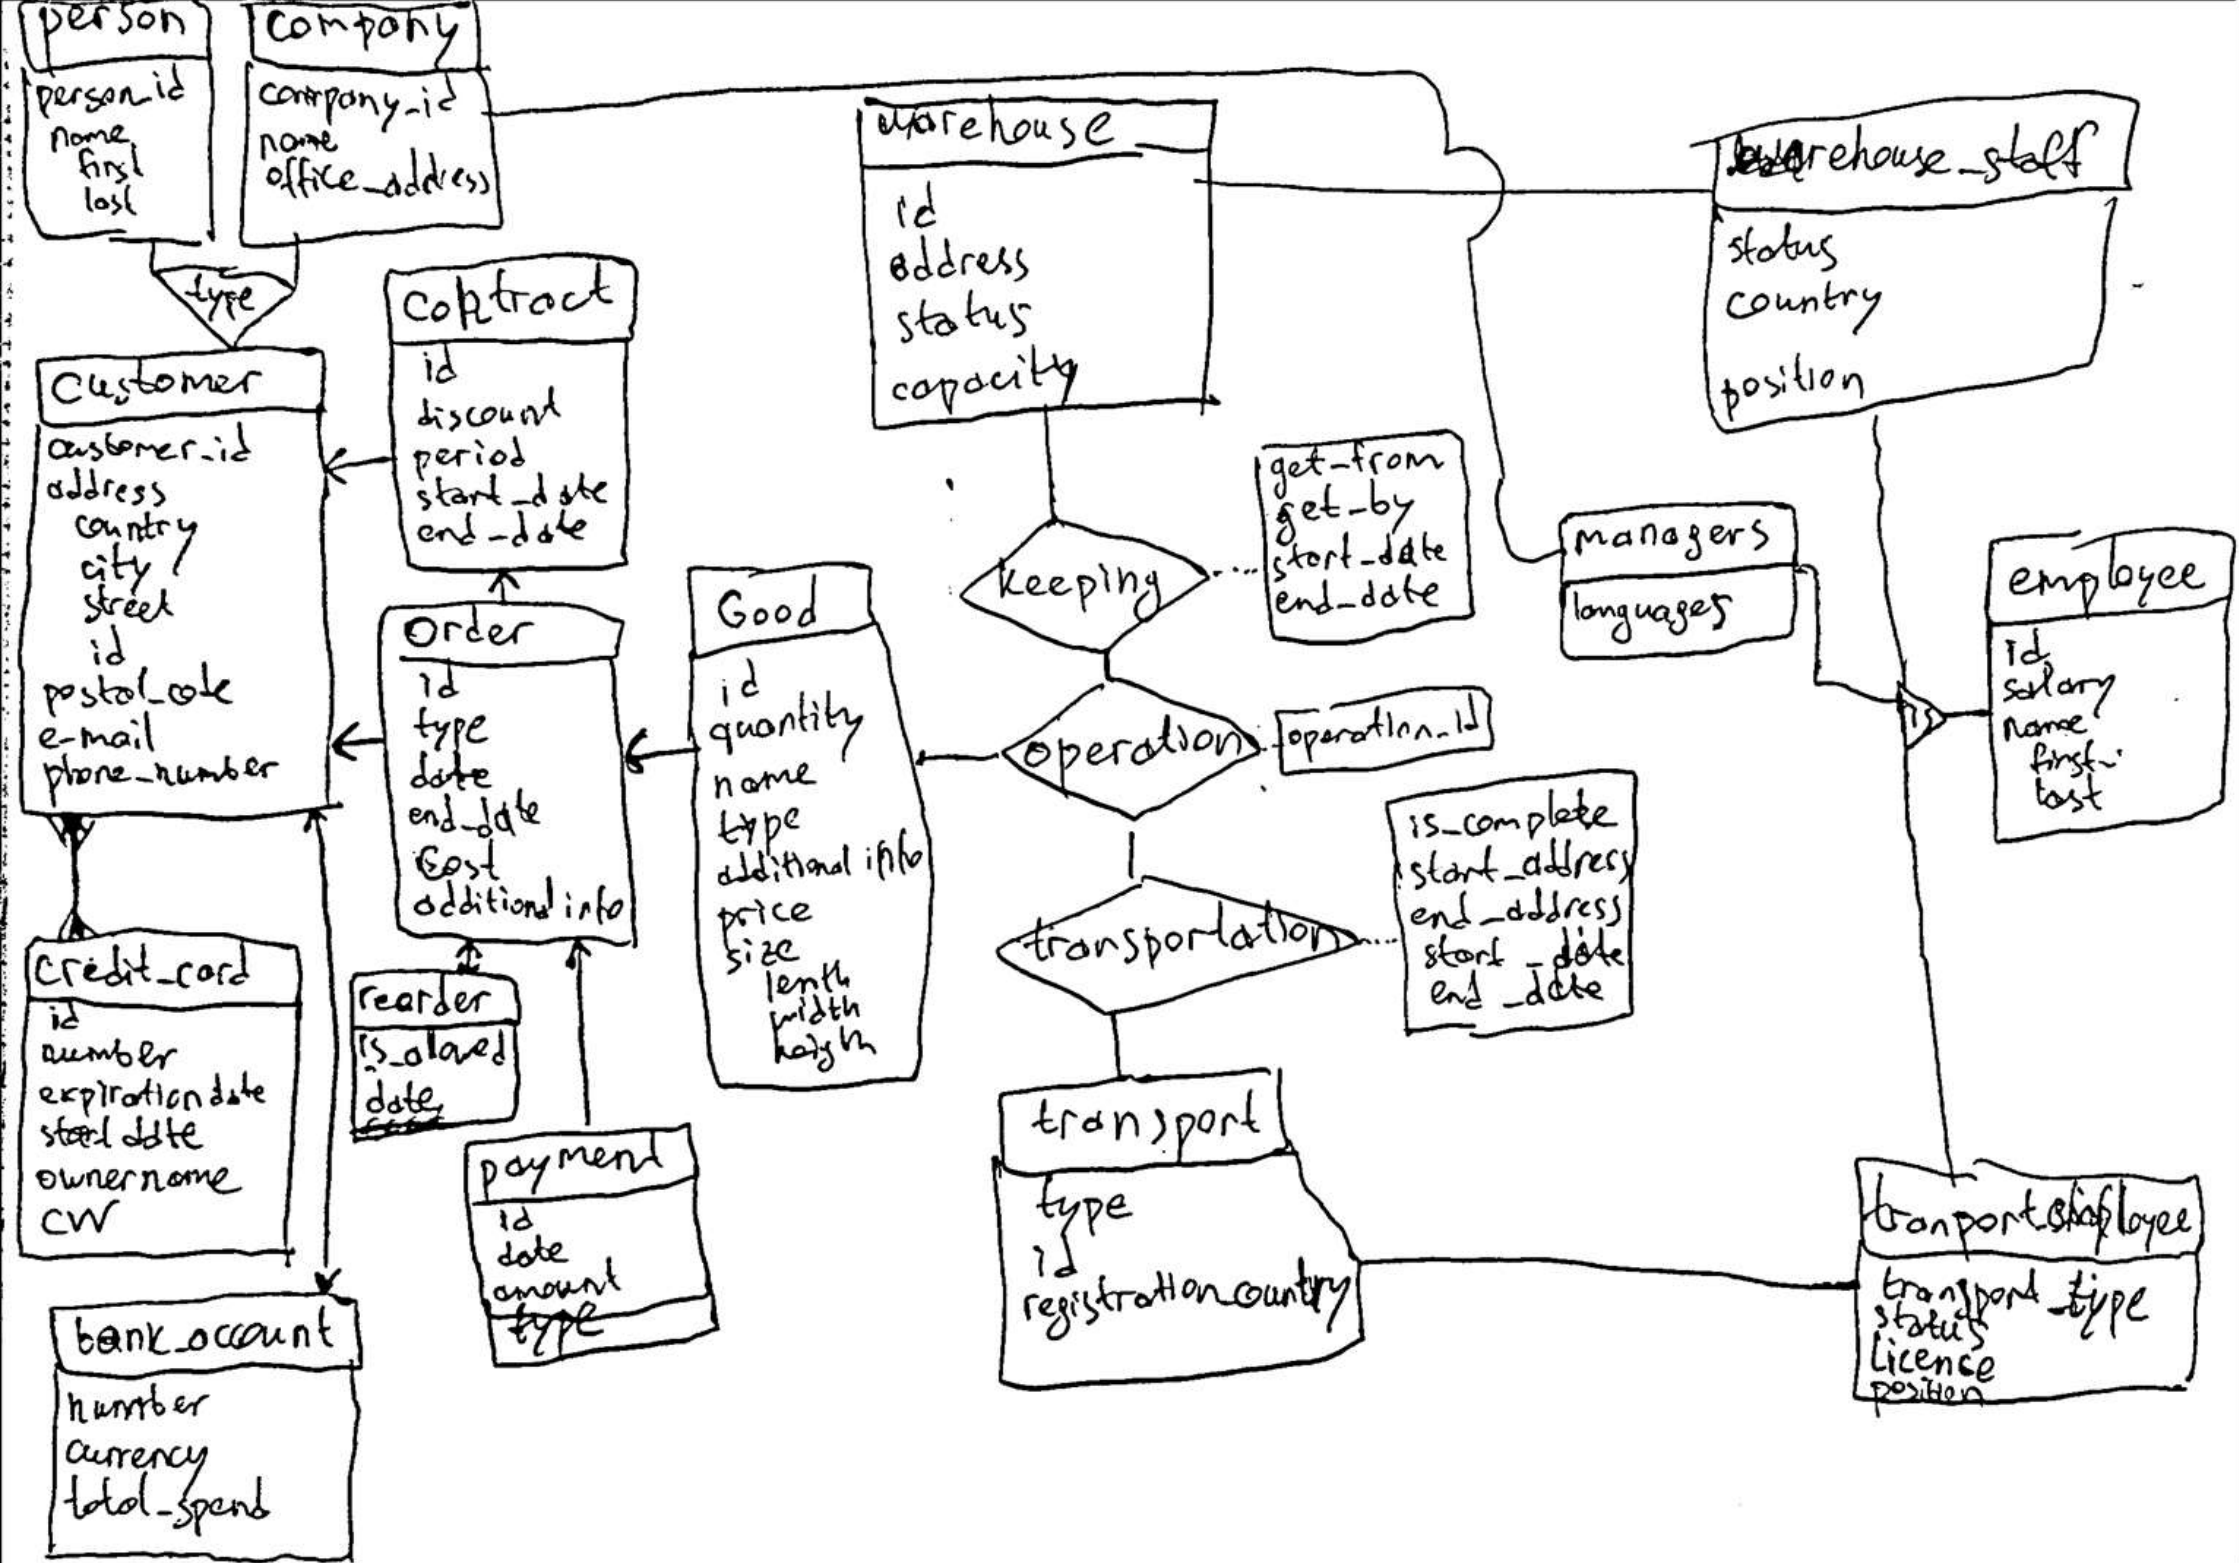 person
person_id
name
first
last
company
company_id
name
office_address
type
customer
customer_id
address
country
city
street
id
postal_code
e-mail
phone_number
contract
id
discount
period
start_date
end_date
Order
id
type
date
end_date
Cost
additional info
credit_card
id
number
expiration date
start date
owner name
reorder
is_alowed
date
payment
id
date
amount
type
bank_account
number
currency
total_spend
Good
id
quantity
name
type
additional info
price
size
lenth
width
heigth
warehouse
id
address
status
capacity
keeping
get_from
get_by
start_date
end_date
operation
operation_id
transportation
is_complete
start_address
end_address
start_date
end_date
transport
type
id
registration country
warehouse_staff
status
country
position
managers
languages
employee
id
salary
name
first
last
is
transport_type
status
licence
position